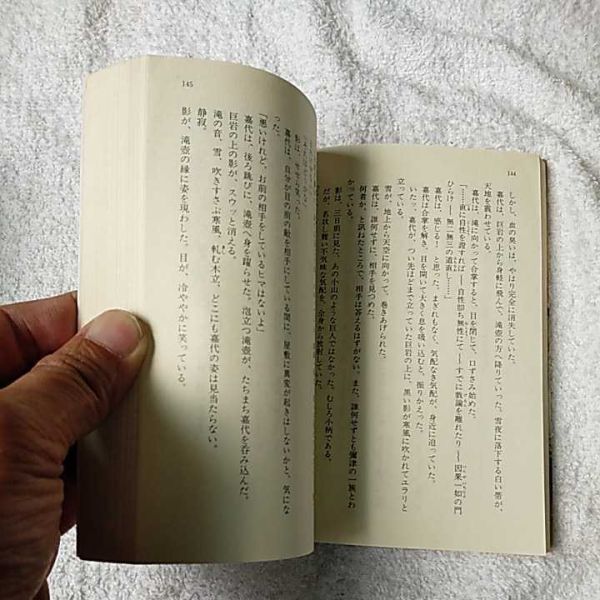 144
しかし、血の臭いは、やはり完全に消失していた。
嘉代は、巨岩の上から身軽に飛んで、滝壺の方へ降りていった。雪夜に落下する白い帯が、
天地を震わせている。
嘉代は、滝に向かって合掌すると、目を閉じて、口ずさみ始めた。
「……直に自性を証すれば――自性即ち無性にて――すでに戯論を離れたり――因果一如の門
ひらけ――無二無三の道直し……」
嘉代は、感じる! と思った。まぎれもなく、気配なき気配が、身近に迫っていた。
嘉代は合掌を解き、目を開いて大きく息を吸い込むと、振りかえった。
いたッ。嘉代が、つい先ほどまで立っていた巨岩の上に、黒い影が寒風に吹かれてユラリと
立っている。
雪が、地上から天空に向かって、巻きあげられた。
嘉代は、誰何せずに、相手を見つめた。
何者か、と訊ねたところで、相手は答えるはずがない。また、誰何せずとも彌津の一族とわ
かっている。
影は、三日前に見た、あの小山のような巨人ではなかった。むしろ小柄である。
だが、名状し難い不気味な気配を、全身から放射していた。
145
影は、せせら笑った。
嘉代は、自分が目の前の敵を相手にしている間に、屋敷に異変が起きはしないかと、気にな
った。
「悪いけれど、お前の相手をしているヒマはないよ」
嘉代は、後ろ跳びに、滝壺へ身を躍らせた。泡立つ滝壺が、たちまち嘉代を呑み込んだ。
巨岩の上の影が、スウッと消える。
滝の音、雪、吹きすさぶ寒風、軋む木立。どこにも嘉代の姿は見当たらない。
静寂。
影が、滝壺の縁に姿を現わした。目が、冷ややかに笑っている。